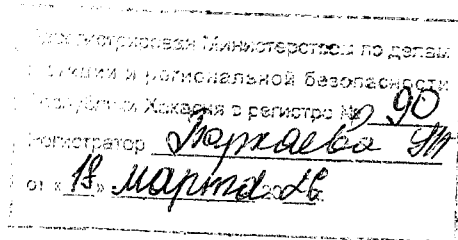 Зарегистрирован Министерством по делам
юстиции и региональной безопасности
Республики Хакасия в регистре № 90
Регистратор
от « » марта 20 26